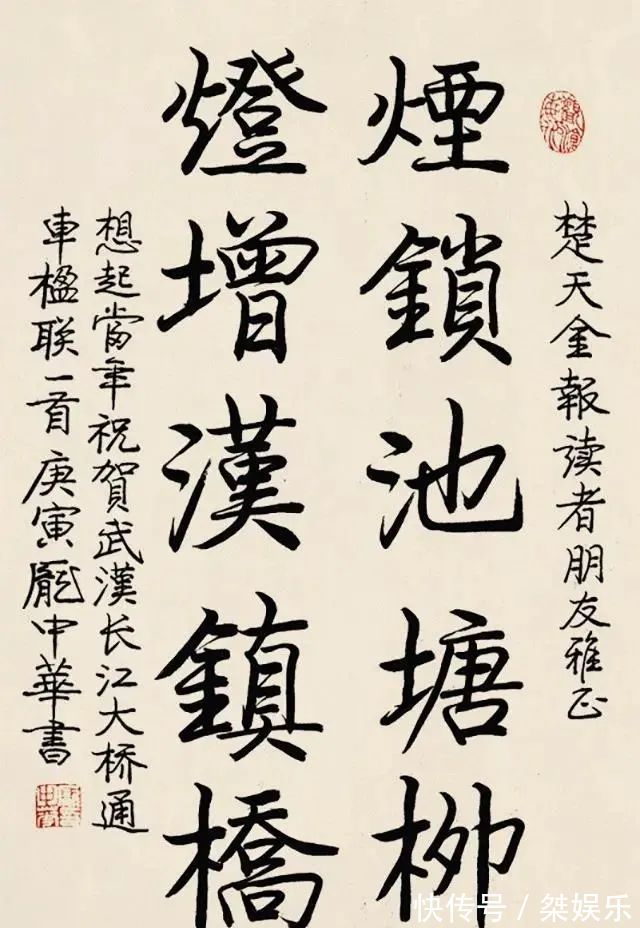 楚天金報读者朋友雅正
煙鎖池塘柳
燈增漢鎮橋
想起當年祝賀武漢长江大桥通
車楹联一首庚寅龐中華書
快传号/桀娱乐